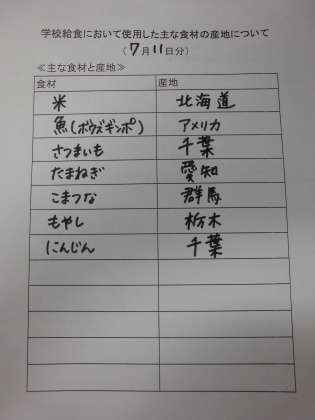 学校給食において使用した主な食材の産地について
（7月11日分）
≪主な食材と産地≫
食材 産地
米 北海道
魚(ボウズギンポ) アメリカ
さつまいも 千葉
たまねぎ 愛知
こまつな 群馬
もやし 栃木
にんじん 千葉